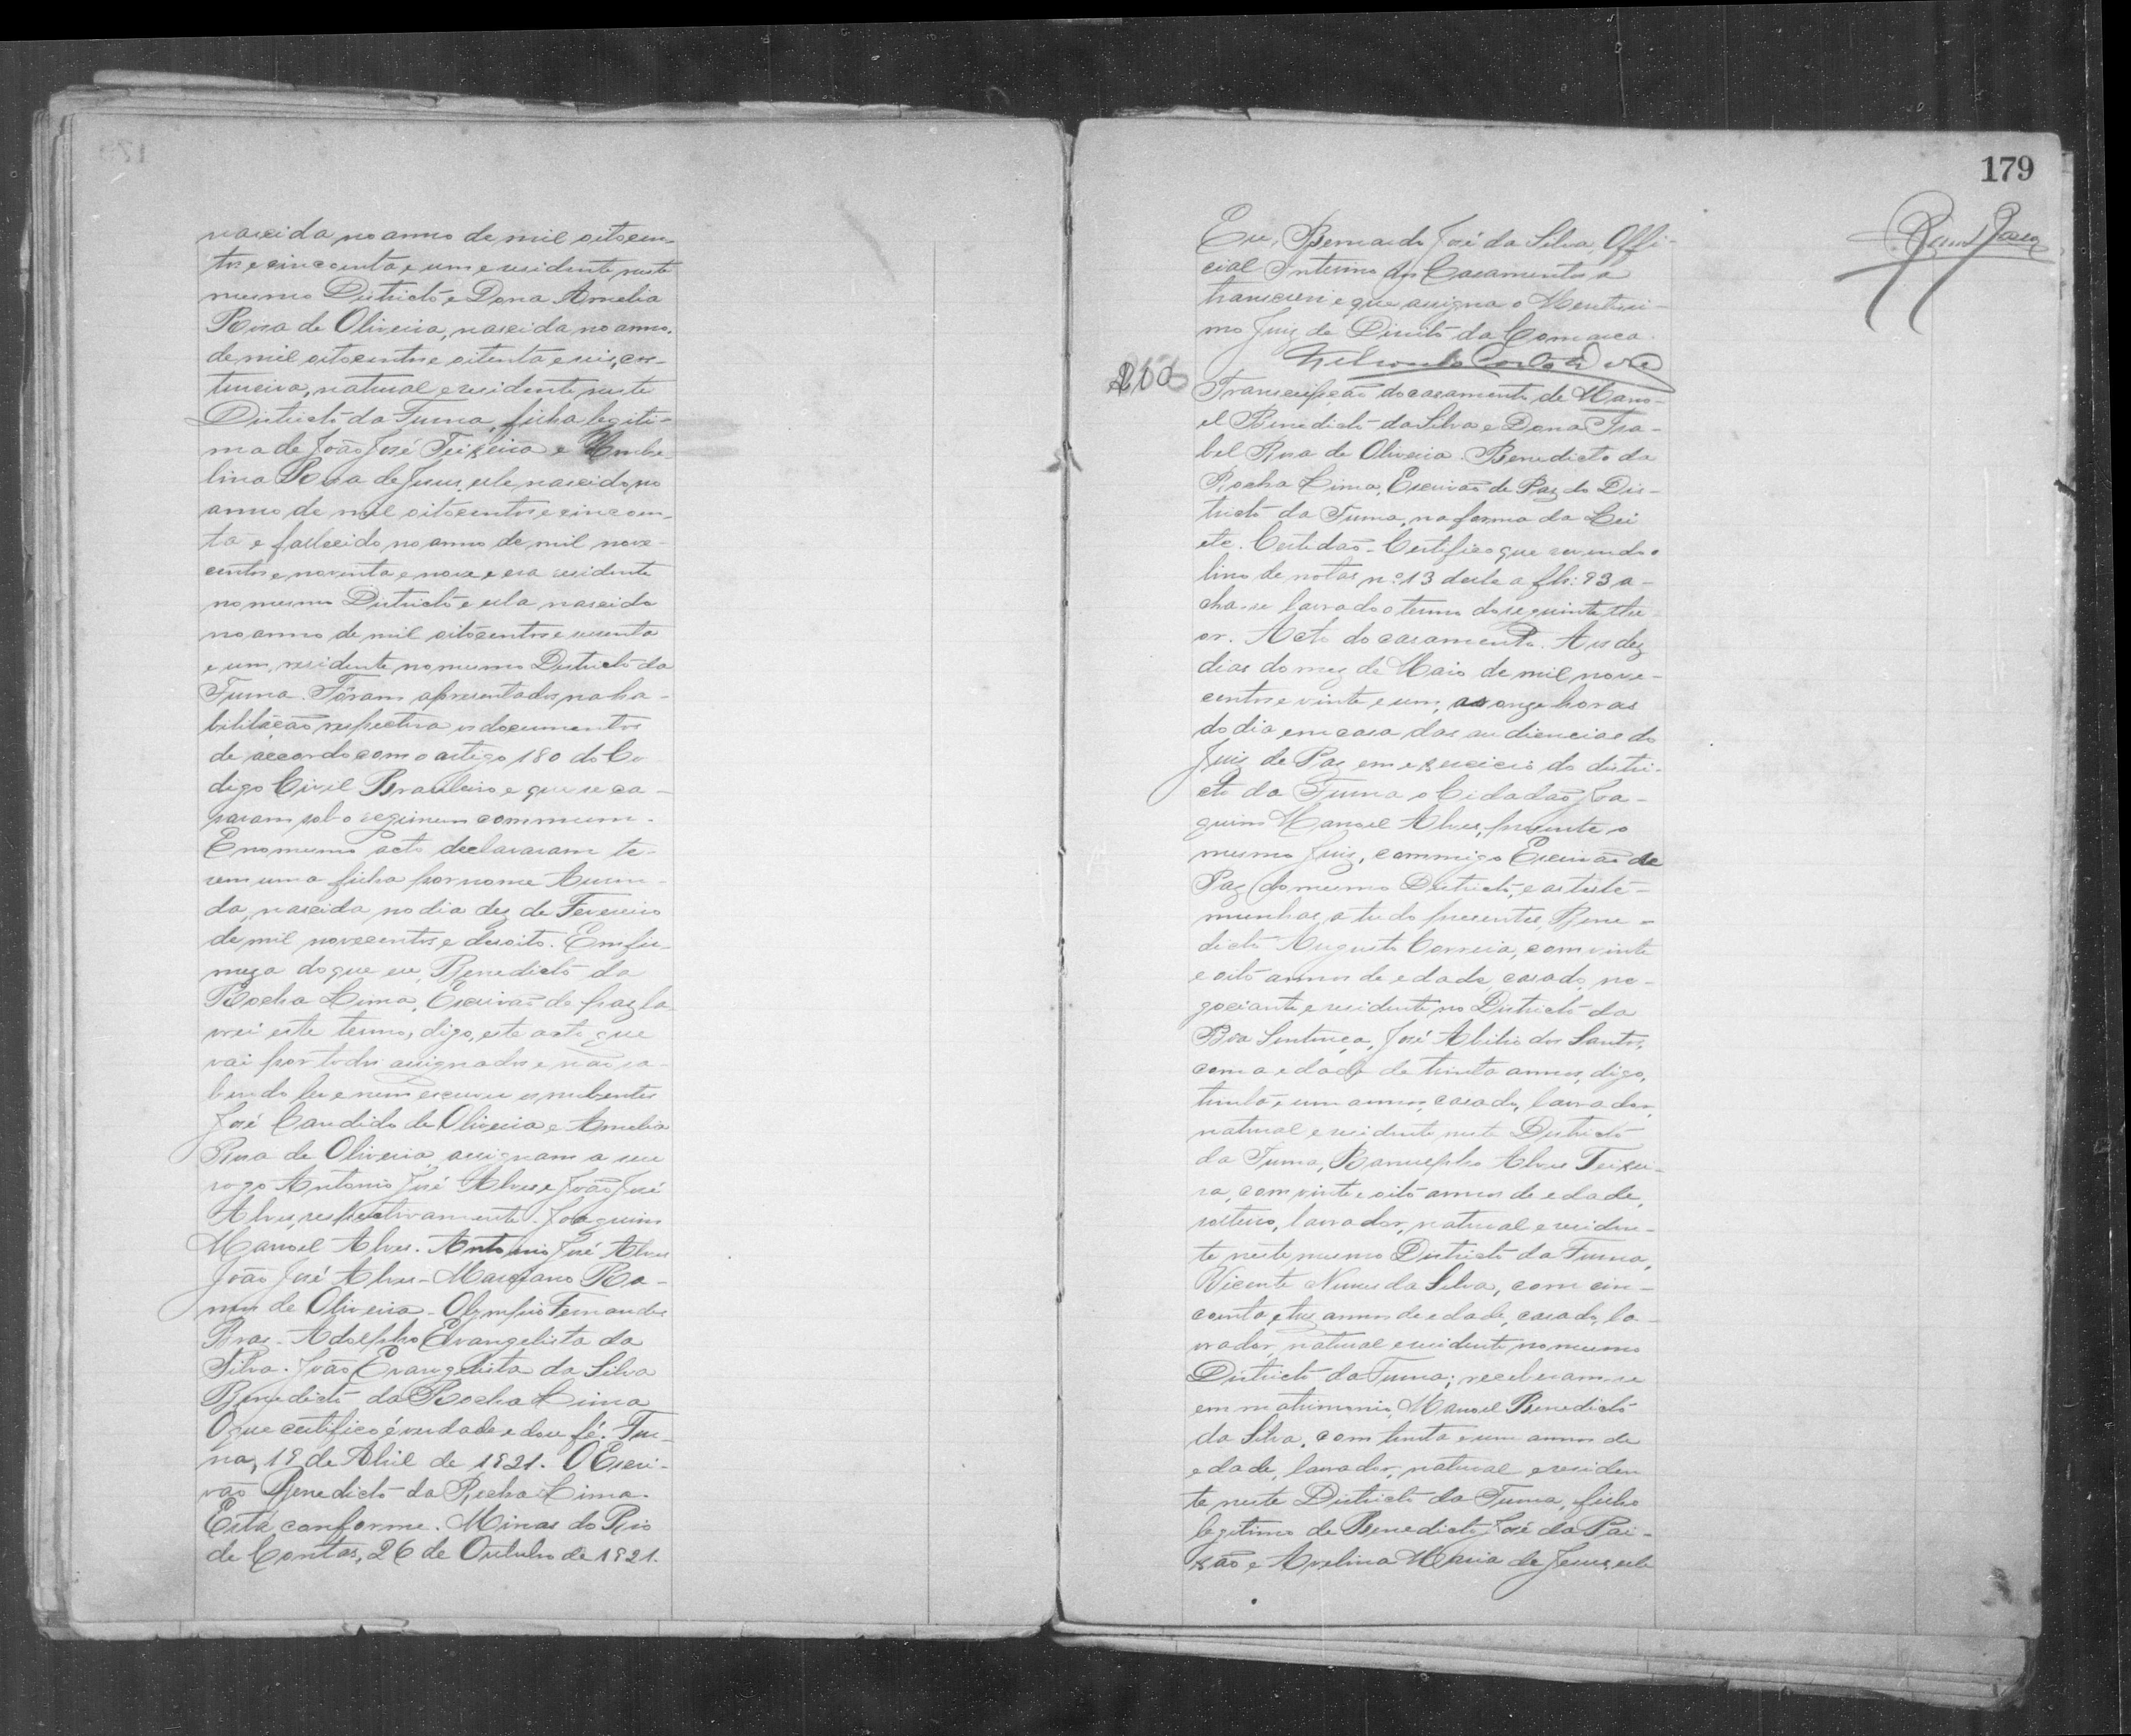 nascida no anno de mil oitocen-
tos e cincoenta e um e residente neste
mesmo Districto e Dona Amelia
Rosa de Oliveira, nascida no anno
de mil oitocentos e oitenta e seis, cos-
tureira, natural e residente neste
Districto da Furna, filha legiti-
ma de João José Teixeira e Umbe-
lina Rosa de Jesus, este nascido no
anno de mil oitocentos e cincoen-
ta e fallecido no anno de mil nove-
centos e noventa e nove e era residente
no mesmo Districto e esta nascida
no anno de mil oitocentos e sessenta
e um, residente no mesmo Districto da
Furna. Fôram apresentados na ha-
bilitação respectiva os documentos
de accordo com o artigo 180 do Co-
digo Civil Brasileiro e que se ca-
saram sob o regimen commum.
E no mesmo acto declararam te-
rem uma filha por nome
da, nascida no dia dez de Fevereiro
de mil novecentos e desoito. Em fir-
meza do que eu, Benedicto da
Rocha Lima, Escrivão de paz la-
vrei este termo, digo, este acto que
vai por todos assignados e não sa-
bendo ler e nem escrever os nubentes
José Candido de Oliveira e Amelia
Rosa de Oliveira, assignam a seu
rogo Antonio José Alves e João José
Alves, respectivamente. Joaquim
Manoel Alves. Antonio José Alves
João José Alves - Marciano Ra-
mos de Oliveira - Olympio Fernandes
Braz - Adolpho Evangelista da
Silva. João Evangelista da Silva
Benedicto da Rocha Lima
O que certifico é verdade e dou fé. Fur-
na, 19 de Abril de 1921. O Escri-
vão Benedicto da Rocha Lima.
Está conforme. Minas do Rio
de Contas, 26 de Outubro de 1921.
179
Eu, Bernardo José da Silva, Offi-
cial Interino dos Casamentos a
transcrevi e que assigna o Meritissi-
mo Juiz de Direito da Comarca.
Transcripção do casamento de Mano-
el Benedicto da Silva e Dona Isa-
bel Rosa de Oliveira. Benedicto da
Rocha Lima, Escrivão de Paz do Dis-
tricto da Furna, na forma da Lei
etc. Certidão - Certifico que revendo o
livro de notas nº 13 deste a fls: 93 a-
cha-se lavrado o termo do seguinte the-
or. Acto do casamento. Aos dez
dias do mez de Maio de mil nove-
centos e vinte e um, as onze horas
do dia em casa das audiencias do
Juiz de Paz em exercicio do distri-
cto da Furna o Cidadão Joa-
quim Manoel Alves, presente o
mesmo Juiz, commigo Escrivão de
Paz do mesmo Districto, e as teste-
munhas, a tudo presentes, Bene-
dicto Augusto Correia, com vinte
e oito annos de edade, casado, ne-
gociante e residente no Districto da
Boa Sentença, José Abilio dos Santos,
com a edade de trinta annos, digo,
trinta e um annos, casado, lavrador,
natural e residente neste Districto
da Furna, Ranulpho Alves Teixei-
ra, com vinte e oito annos de edade,
solteiro, lavrador, natural e residen-
te neste mesmo Districto da Furna,
Vicente Nunes da Silva, com cin-
coenta e tres annos de edade, casado, la-
vrador, natural e residente no mesmo
Districto da Furna; receberam-se
em matrimonio, Manoel Benedicto
da Silva, com trinta e um annos de
edade, lavrador, natural e residen-
te neste Districto da Furna, filho
legitimo de Benedicto José da Pai-
xão e Avelina Maria de Jesus, este